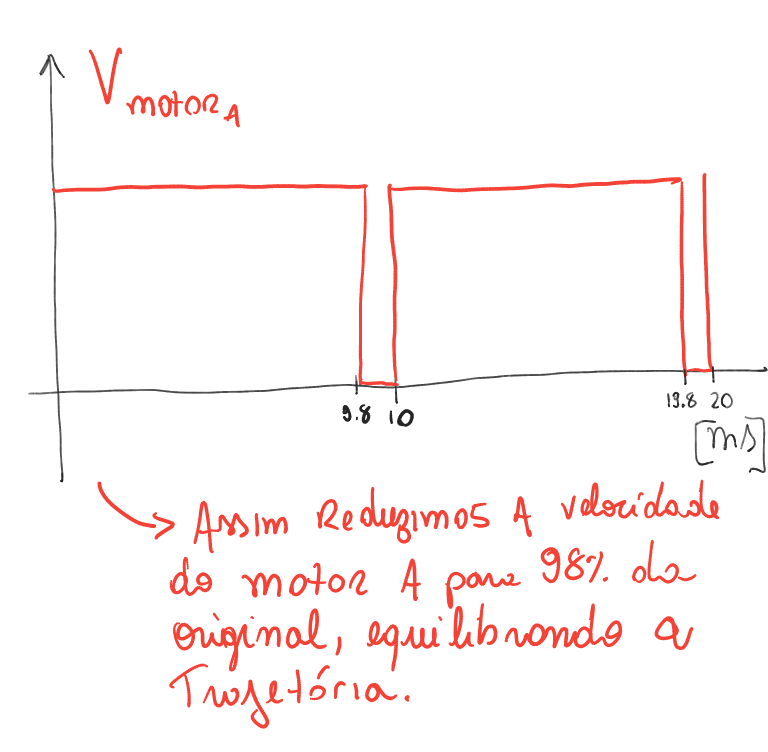 V motor A
9.8 10
19.8 20
[ms]
Assim Reduzimos A velocidade
do motor A para 98% da
original, equilibrando a
Trajetória.